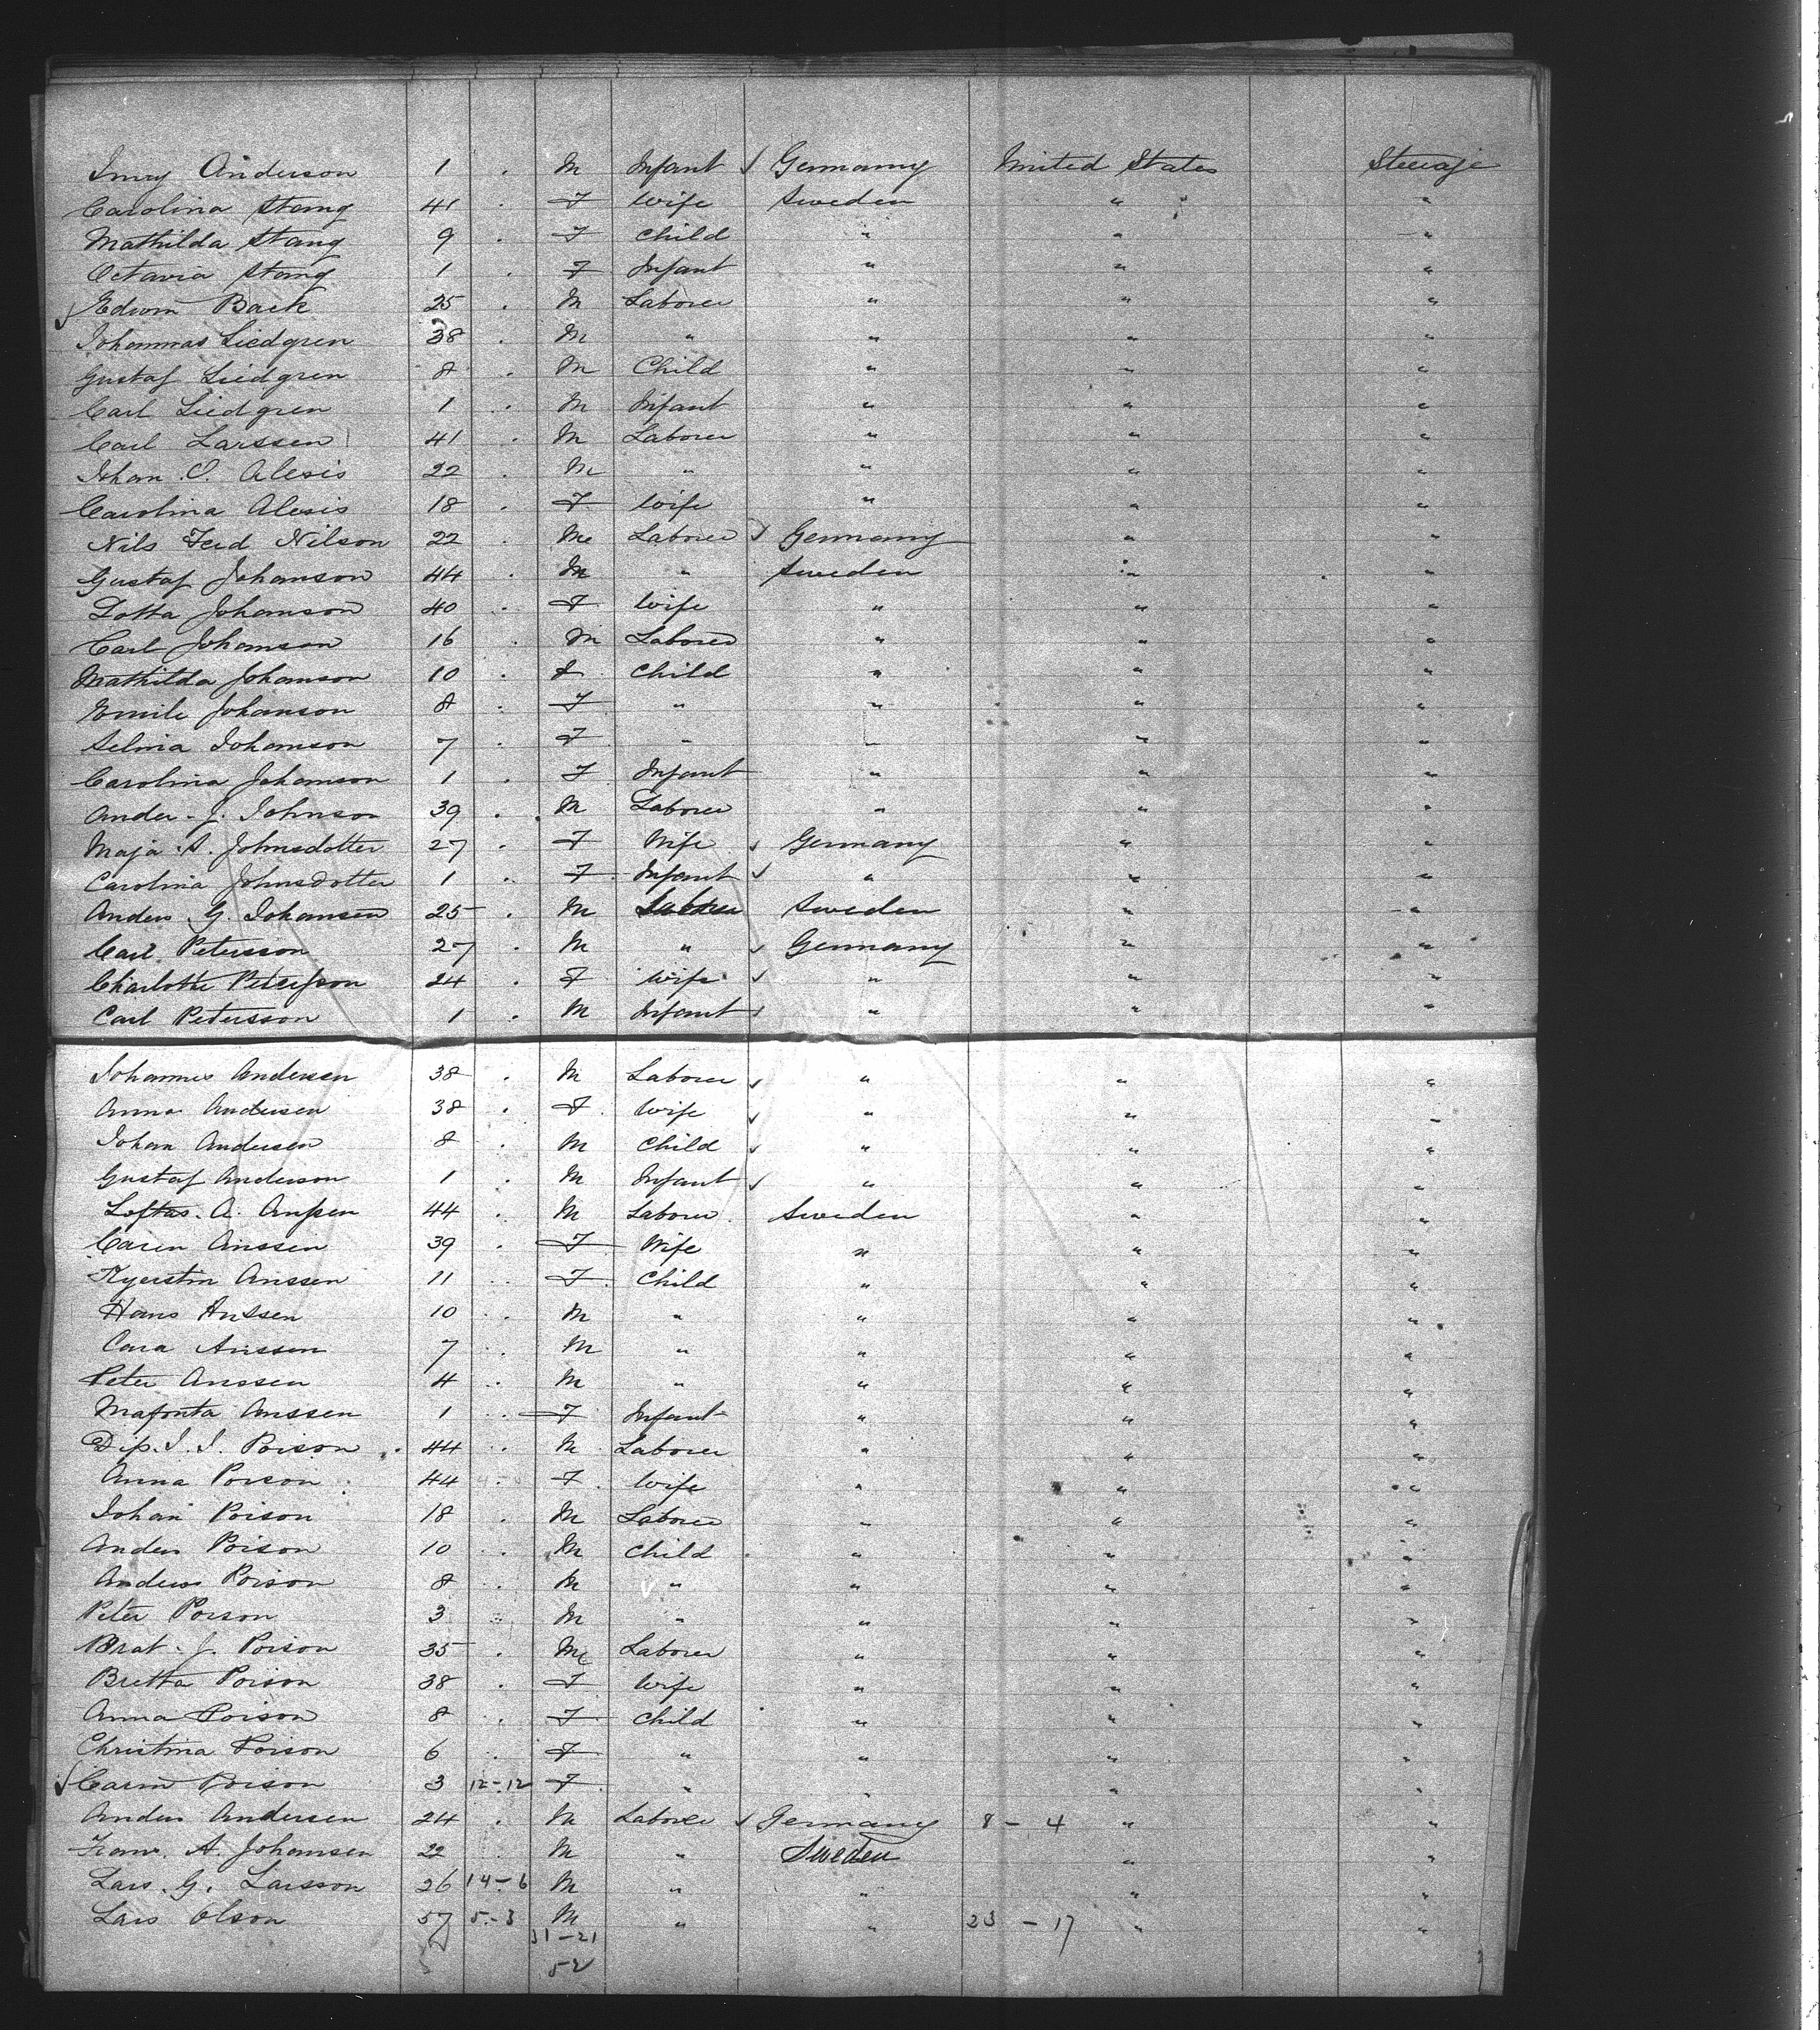 Imey Anderson 1 . M Infant ✓ Germany United States Steerage
Carolina Stang 41 . F Wife Sweden " "
Mathilda Stang 9 . F Child " " "
Octavia Stang 1 . F Infant " " "
✓ Edwin Back 25 . M Laborer " " "
Johannas Liedgren 38 . M " " " "
Gustaf Liedgren 8 . M Child " " "
Carl Liedgren 1 . M Infant " " "
Carl Larssen 41 . M Laborer " " "
Johan O. Alesis 22 . M " " " "
Carolina Alesis 18 . F Wife " " "
Nils Ferd Nilson 22 . M Laborer ✓ Germany " "
Gustaf Johanson 44 . M " Sweden " "
Lotta Johanson 40 . F Wife " " "
Carl Johanson 16 . M Laborer " " "
Mathilda Johanson 10 . F Child " " "
Emile Johanson 8 . F " " " "
Selma Johanson 7 . F " " " "
Carolina Johanson 1 . F Infant " " "
Ander. J. Johnson 39 . M Laborer " " "
Maja A. Johnsdotter 27 . F Wife ✓ Germany " "
Carolina Johnsdotter 1 . F Infant ✓ " " "
Anders G. Johansen 25 . M Laborer Sweden " "
Carl Petersson 27 . M " ✓ Germany " "
Charlotte Petersson 24 . F Wife ✓ " " "
Carl Petersson 1 . M Infant ✓ " " "
Johannes Andersen 38 . M Laborer ✓ " " "
Anna Andersen 38 . F Wife ✓ " " "
Johan Andersen 8 . M Child ✓ " " "
Gustaf Anderson 1 . M Infant ✓ " " "
Loftas. A. Anssen 44 . M Laborer Sweden " "
Caren Anssen 39 . F Wife " " "
Kyerstin Anssen 11 . F Child " " "
Hans Anssen 10 . M " " " "
Cara Anssen 7 . M " " " "
Peter Anssen 4 . M " " " "
Mafonta Anssen 1 . F Infant " " "
Dip. I. I. Poison 44 . M Laborer " " "
Anna Poison 44 . F Wife " " "
Johan Poison 18 . M Laborer " " "
Anders Poison 10 . M Child " " "
Anders Poison 8 . M " " " "
Peter Poison 3 . M " " " "
Brat. J. Poison 35 . M Laborer " " "
Bretta Poison 38 . F Wife " " "
Anna Poison 8 . F Child " " "
Christina Poison 6 . F " " " "
✓ Carin Poison 3 12-12 F " " " "
Anders Andersen 24 . M Laborer ✓ Germany 8 - 4 " "
A. Johansen 22 . M " Sweden " "
Lars. G. Larsson 26 14-6 M " " " "
Lars Olson 57 5-3 M " " 23 - 17 " "
31-21
52